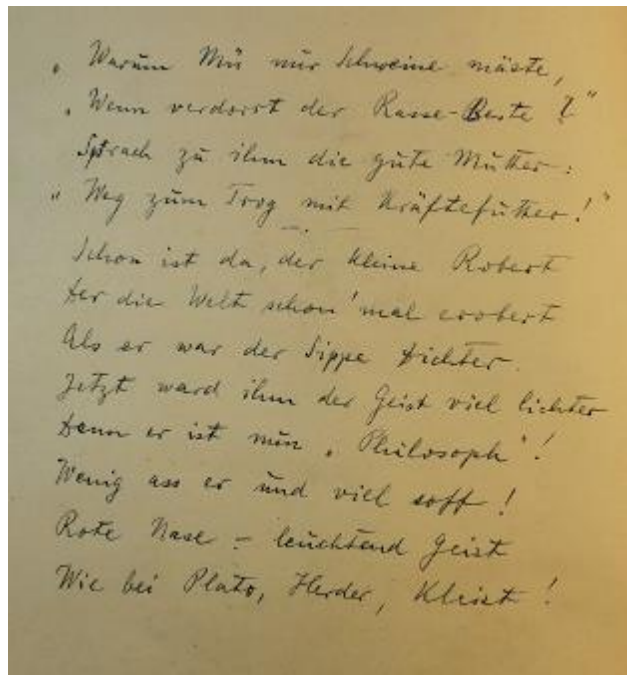 „Warum Mü nur Schweine mäste,
„Wenn verdorrt der Rasse-Beste?"
Sprach zu ihm die gute Mutter:
„Weg zum Trog mit Kräftefutter!"
Schon ist da, der kleine Robert
Der die Welt schon 'mal erobert
Als er war der Sippe Dichter.
Jetzt ward ihm der Geist viel lichter
Denn er ist nun „Philosoph"!
Wenig ass er und viel soff!
Rote Nase - leuchtend Geist
Wie bei Plato, Herder, Kleist!